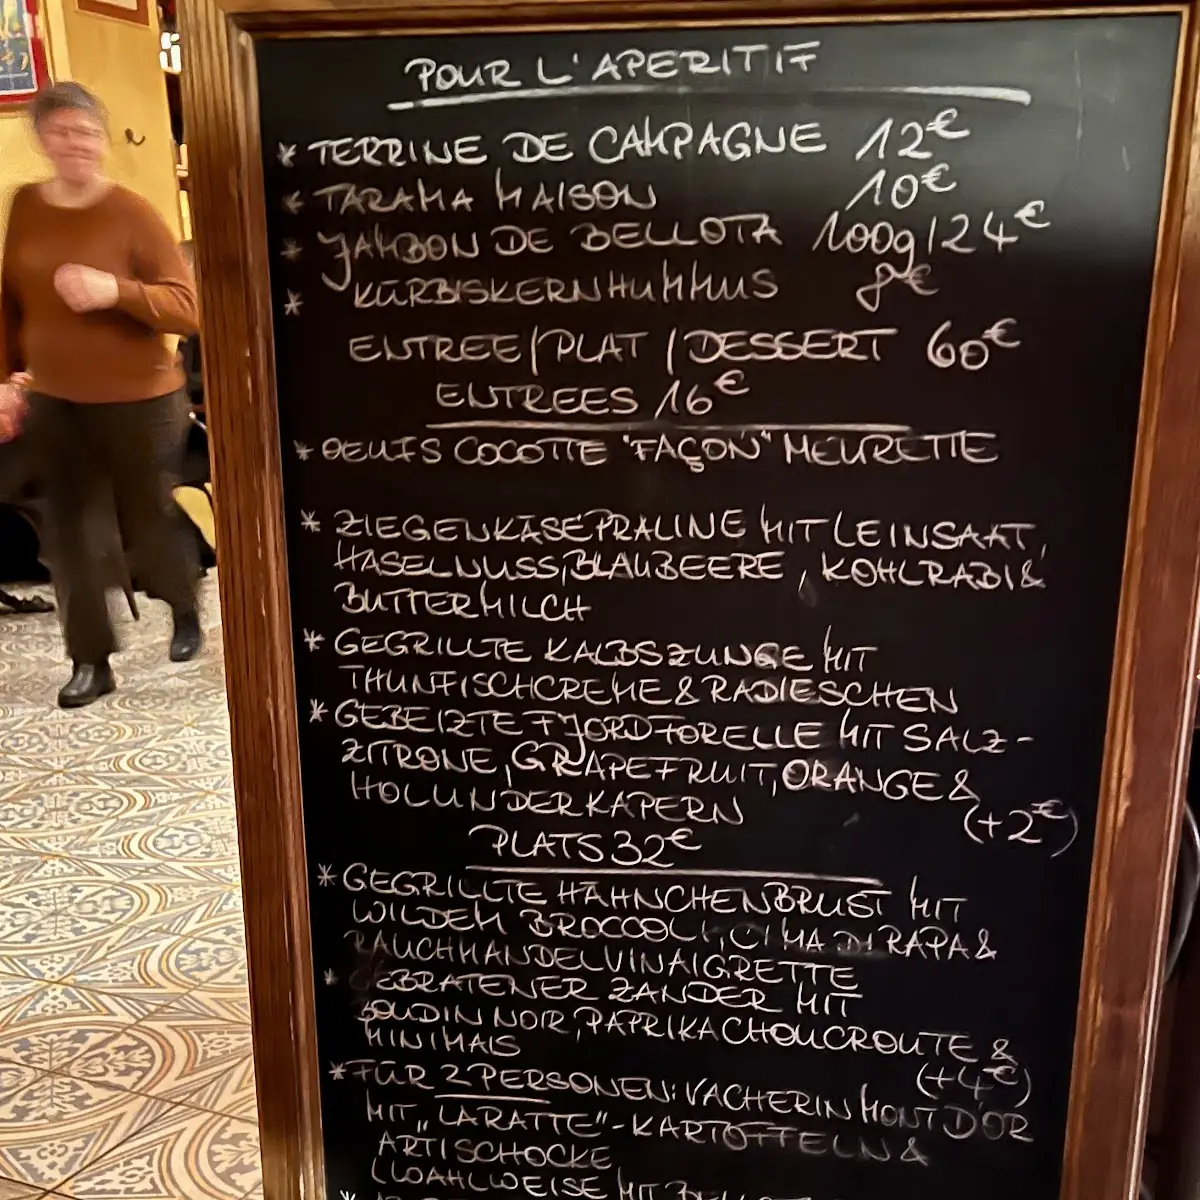 POUR L'APERITIF
* TERRINE DE CAMPAGNE 12€
* TARAMA MAISON 10€
* JAMBON DE BELLOTA 100g/24€
* KÜRBISKERNHUMMUS 8€
ENTREE/PLAT/DESSERT 60€
ENTREES 16€
* OEUFS COCOTTE "FAÇON" MEURETTE
* ZIEGENKÄSEPRALINE MIT LEINSAAT,
HASELNUSS, BLAUBEERE, KOHLRABI &
BUTTERMILCH
* GEGRILLTE KALBSZUNGE MIT
THUNFISCHCREME & RADIESCHEN
* GEBEIZTE FJORDFORELLE MIT SALZ-
ZITRONE, GRAPEFRUIT, ORANGE &
HOLUNDERKAPERN (+2€)
PLATS 32€
* GEGRILLTE HÄHNCHENBRUST MIT
WILDEM BROCCOLI, CIMA DI RAPA &
RAUCHMANDELVINAIGRETTE
* GEBRATENER ZANDER MIT
BOUDIN NOIR, PAPRIKACHOUCROUTE &
MINIMAIS (+4€)
* FÜR 2 PERSONEN: VACHERIN MONT D'OR
MIT „LA RATTE"-KARTOFFELN &
ARTISCHOCKE
(WAHLWEISE MIT